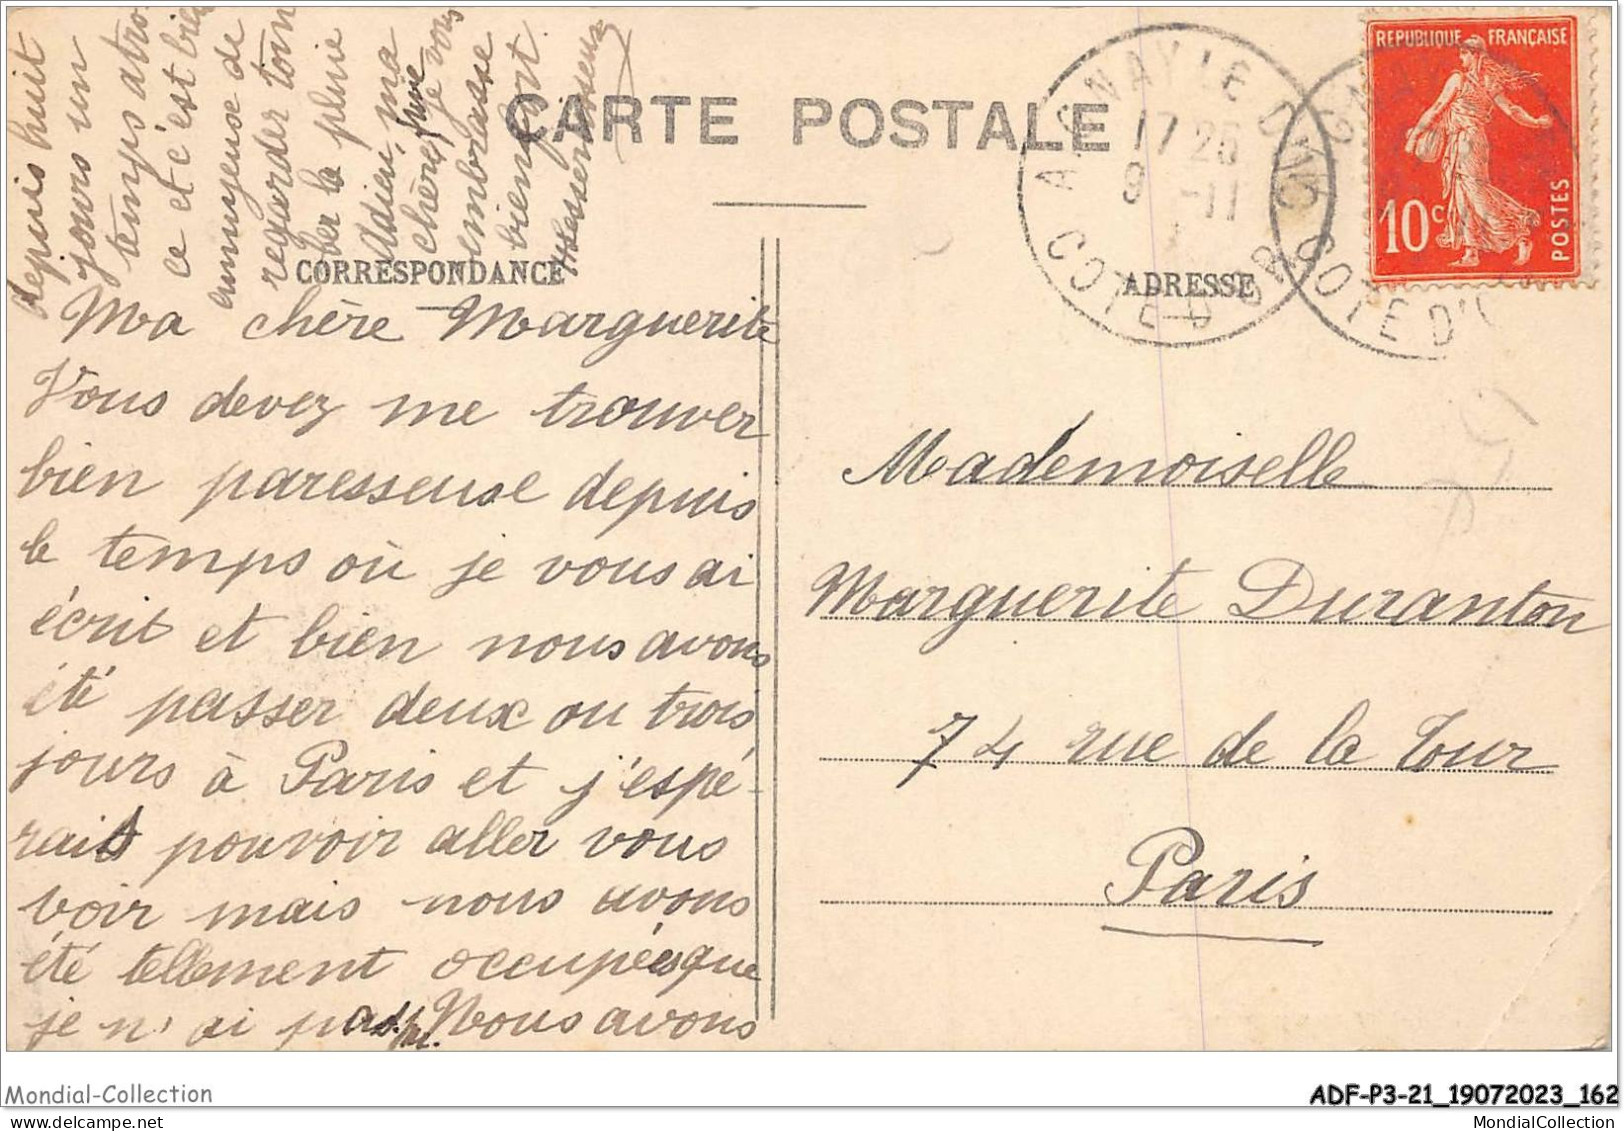 CARTE POSTALE
CORRESPONDANCE
Ma chère Marguerite
Vous devez me trouver
bien paresseuse depuis
le temps où je vous ai
écrit et bien nous avons
été passer deux ou trois
jours à Paris et j'espé-
rais pouvoir aller vous
voir mais nous avons
été tellement occupées que
je n'ai pas pu. Nous avons
depuis huit
jours un
temps atro
ce et c'est bien
ennuyeuse de
regarder tom
ber la pluie
Adieu, ma
chère, je vous
embrasse
bien fort.
ADRESSE
Mademoiselle
Marguerite Duranton
74 rue de la Tour
Paris
REPUBLIQUE FRANÇAISE
10c
POSTES
AIGNAY LE DUC
17 20
9 -11
COTE D'OR
GNAY
COTE D'O
Mondial-Collection
ADF-P3-21_19072023_162
MondialCollection